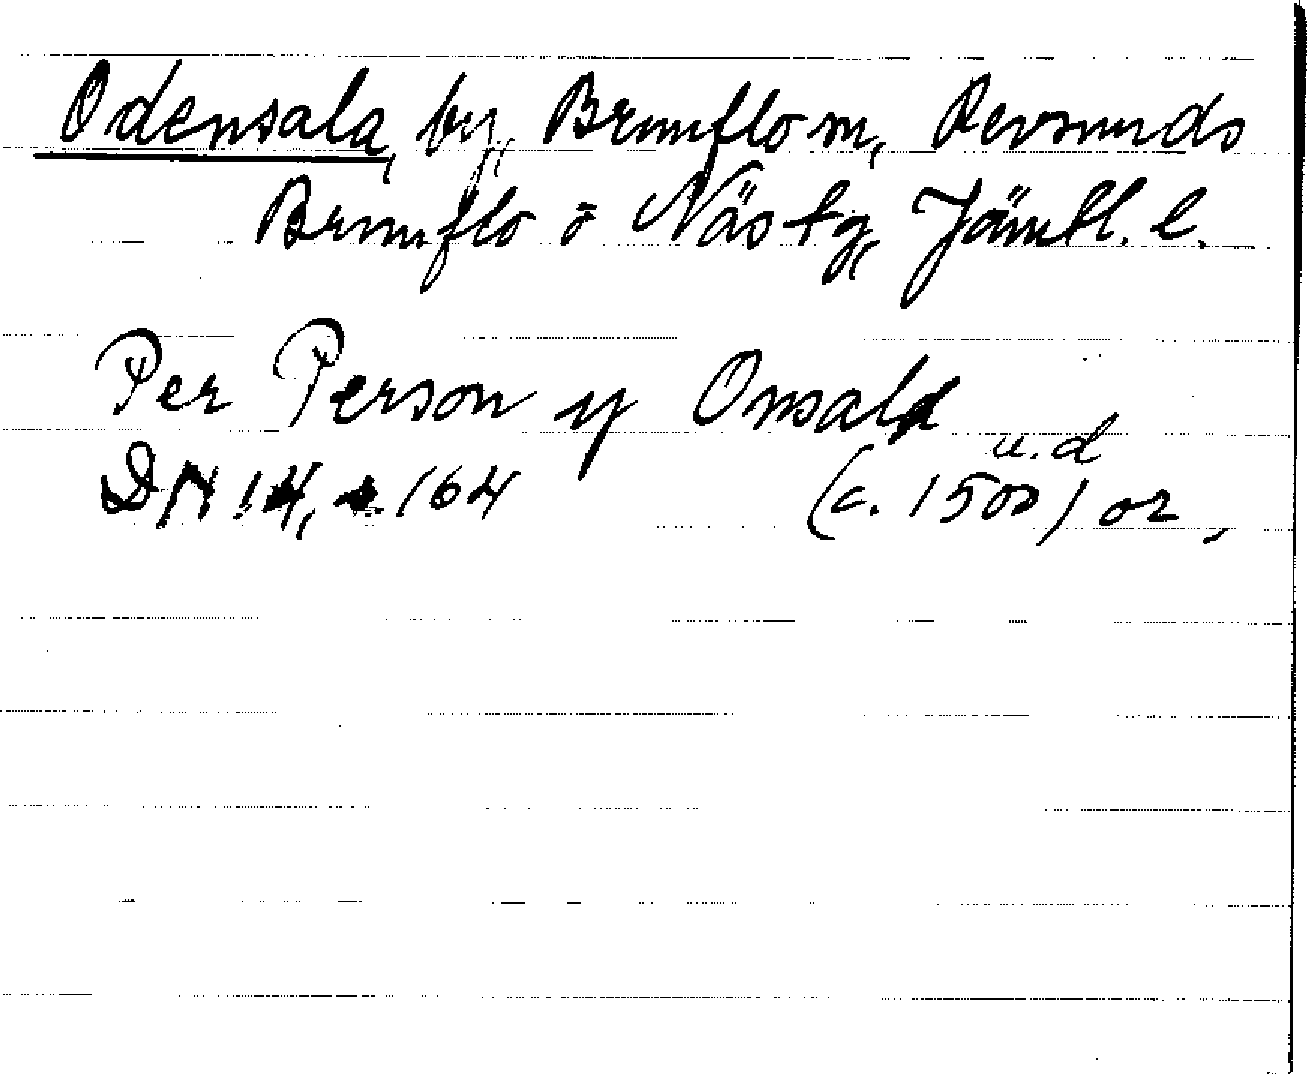 Odensala, by, Brunflo sn, Revsunds
Brunflo o Näs tg, Jämtl. l.
Per Person y Onsala
u.d
DN 14, s. 164 (c. 1500) or,